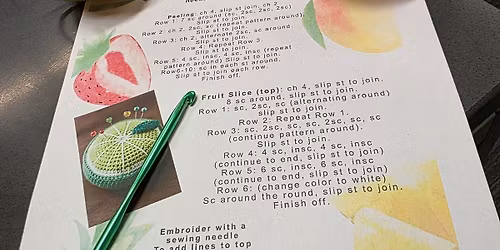 Peeling: ch 4, slip st to join, ch 2
Row 1: 7 sc around (sc, 2sc, 2sc, 2sc)
Slip st to join.
Row 2: ch 2, 2sc, sc (repeat pattern around),
Slip st to join.
Row 3: ch 2, alternate 2sc, sc around.
Slip st to join.
Row 4: Repeat Row 3.
Row 5: 4 sc, insc, 4 sc, insc (repeat
pattern around) Slip st to join.
Row6-10: sc in each st around.
Slip st to join each row.
Finish off.
Fruit Slice (top): ch 4, slip st to join.
8 sc around, slip st to join.
Row 1: sc, 2sc, sc (alternating around)
slip st to join.
Row 2: Repeat Row 1.
Row 3: sc, 2sc, sc, 2sc, sc, sc
(continue pattern around).
Slip st to join.
Row 4: 4 sc, insc, 4 sc, insc
(continue to end, slip st to join)
Row 5: 6 sc, insc, 6 sc, insc
(continue to end, slip st to join)
Row 6: (change color to white)
Sc around the round, slip st to join.
Finish off.
Embroider with a
sewing needle
To add lines to top